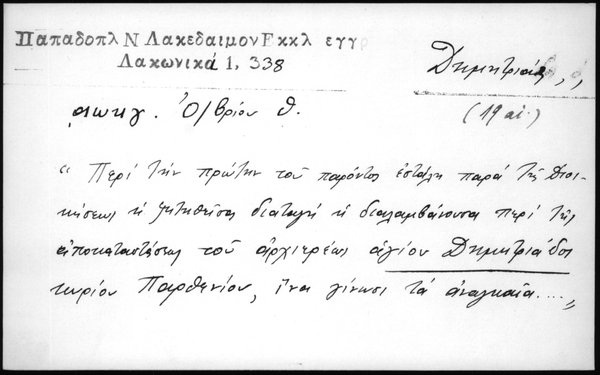 Παπαδοπλ Ν Λακεδαιμον Εκκλ εγγρ
Λακωνικά 1, 338
Δημητριάς,,
(19 αἰ.)
αωκγ. Ὀ/βρίου θ.
“ Περὶ τὴν πρώτην τοῦ παρόντος ἐστάλη παρὰ τῆς Διοι-
κήσεως ἡ ζητηθεῖσα διαταγὴ ἡ διαλαμβάνουσα περὶ τῆς
ἀποκαταστάσεως τοῦ ἀρχιερέως ἁγίου Δημητριάδος
κυρίου Παρθενίου, ἵνα γίνωσι τὰ ἀναγκαῖα....„